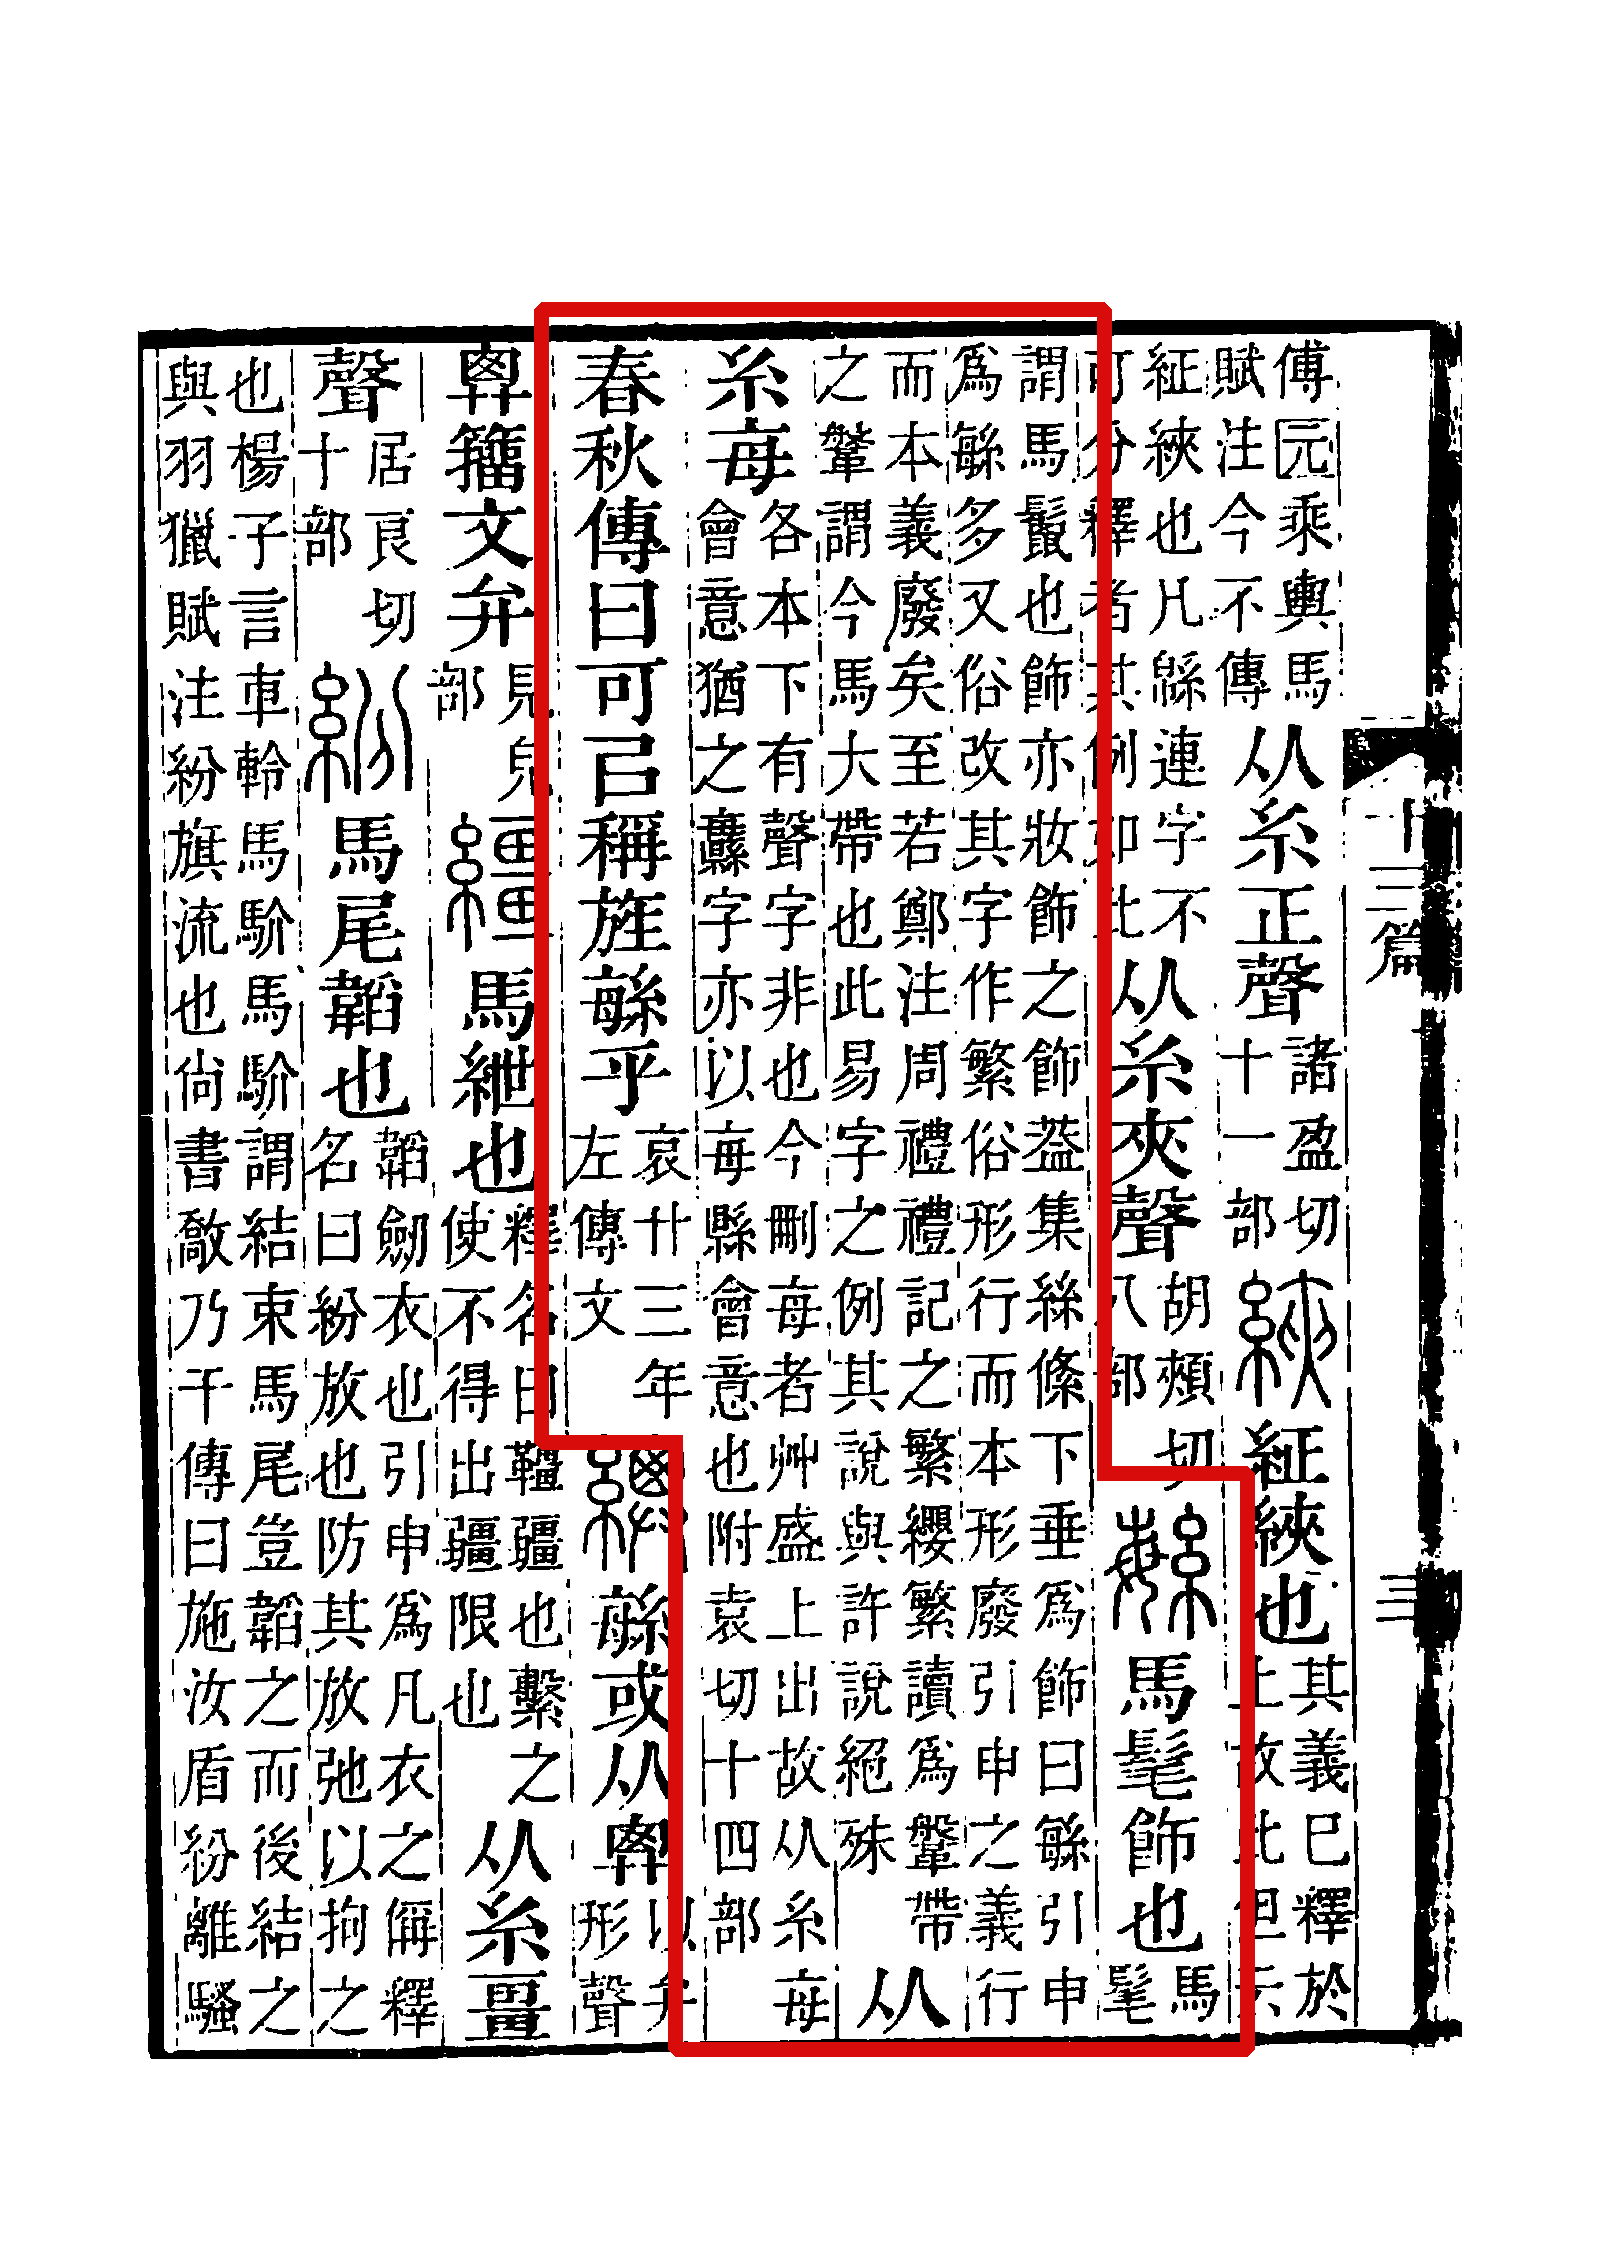 傅元乘輿馬賦注今不傳从糸正聲諸盈切十一部綊䋊綊也其義已釋於上故此但云
䋊綊也凡緜連字不可分釋者其例如此从糸夾聲胡頰切八部緐馬髦飾也馬髦
謂馬鬣也飾亦妝飾之飾葢集絲絛下垂爲飾曰緐引申爲緐多又俗改其字作繁俗形行而本形廢引申之義行
而本義廢矣至若鄭注周禮禮記之繁纓繁讀爲鞶帶之鞶謂今馬大帶也此易字之例其說與許說絕殊从
糸每各本下有聲字非也今刪每者艸盛上出故从糸每會意猶之纛字亦以每縣會意也附袁切十四部
春秋傳曰可㠯稱旌緐乎哀廿三年左傳文緐或从𢍏以弁形聲
𢍏籒文弁見皃部繮馬紲也釋名曰韁疆也繫之使不得出疆限也从糸畺
聲居良切十部紛馬尾韜也韜劒衣也引申爲凡衣之偁釋名曰紛放也防其放弛以拘之
也楊子言車軨馬馬謂結束馬尾豈韜之而後結之與羽獵賦注紛旗流也尙書敿乃干傳曰施汝盾紛離騷
十三篇
三